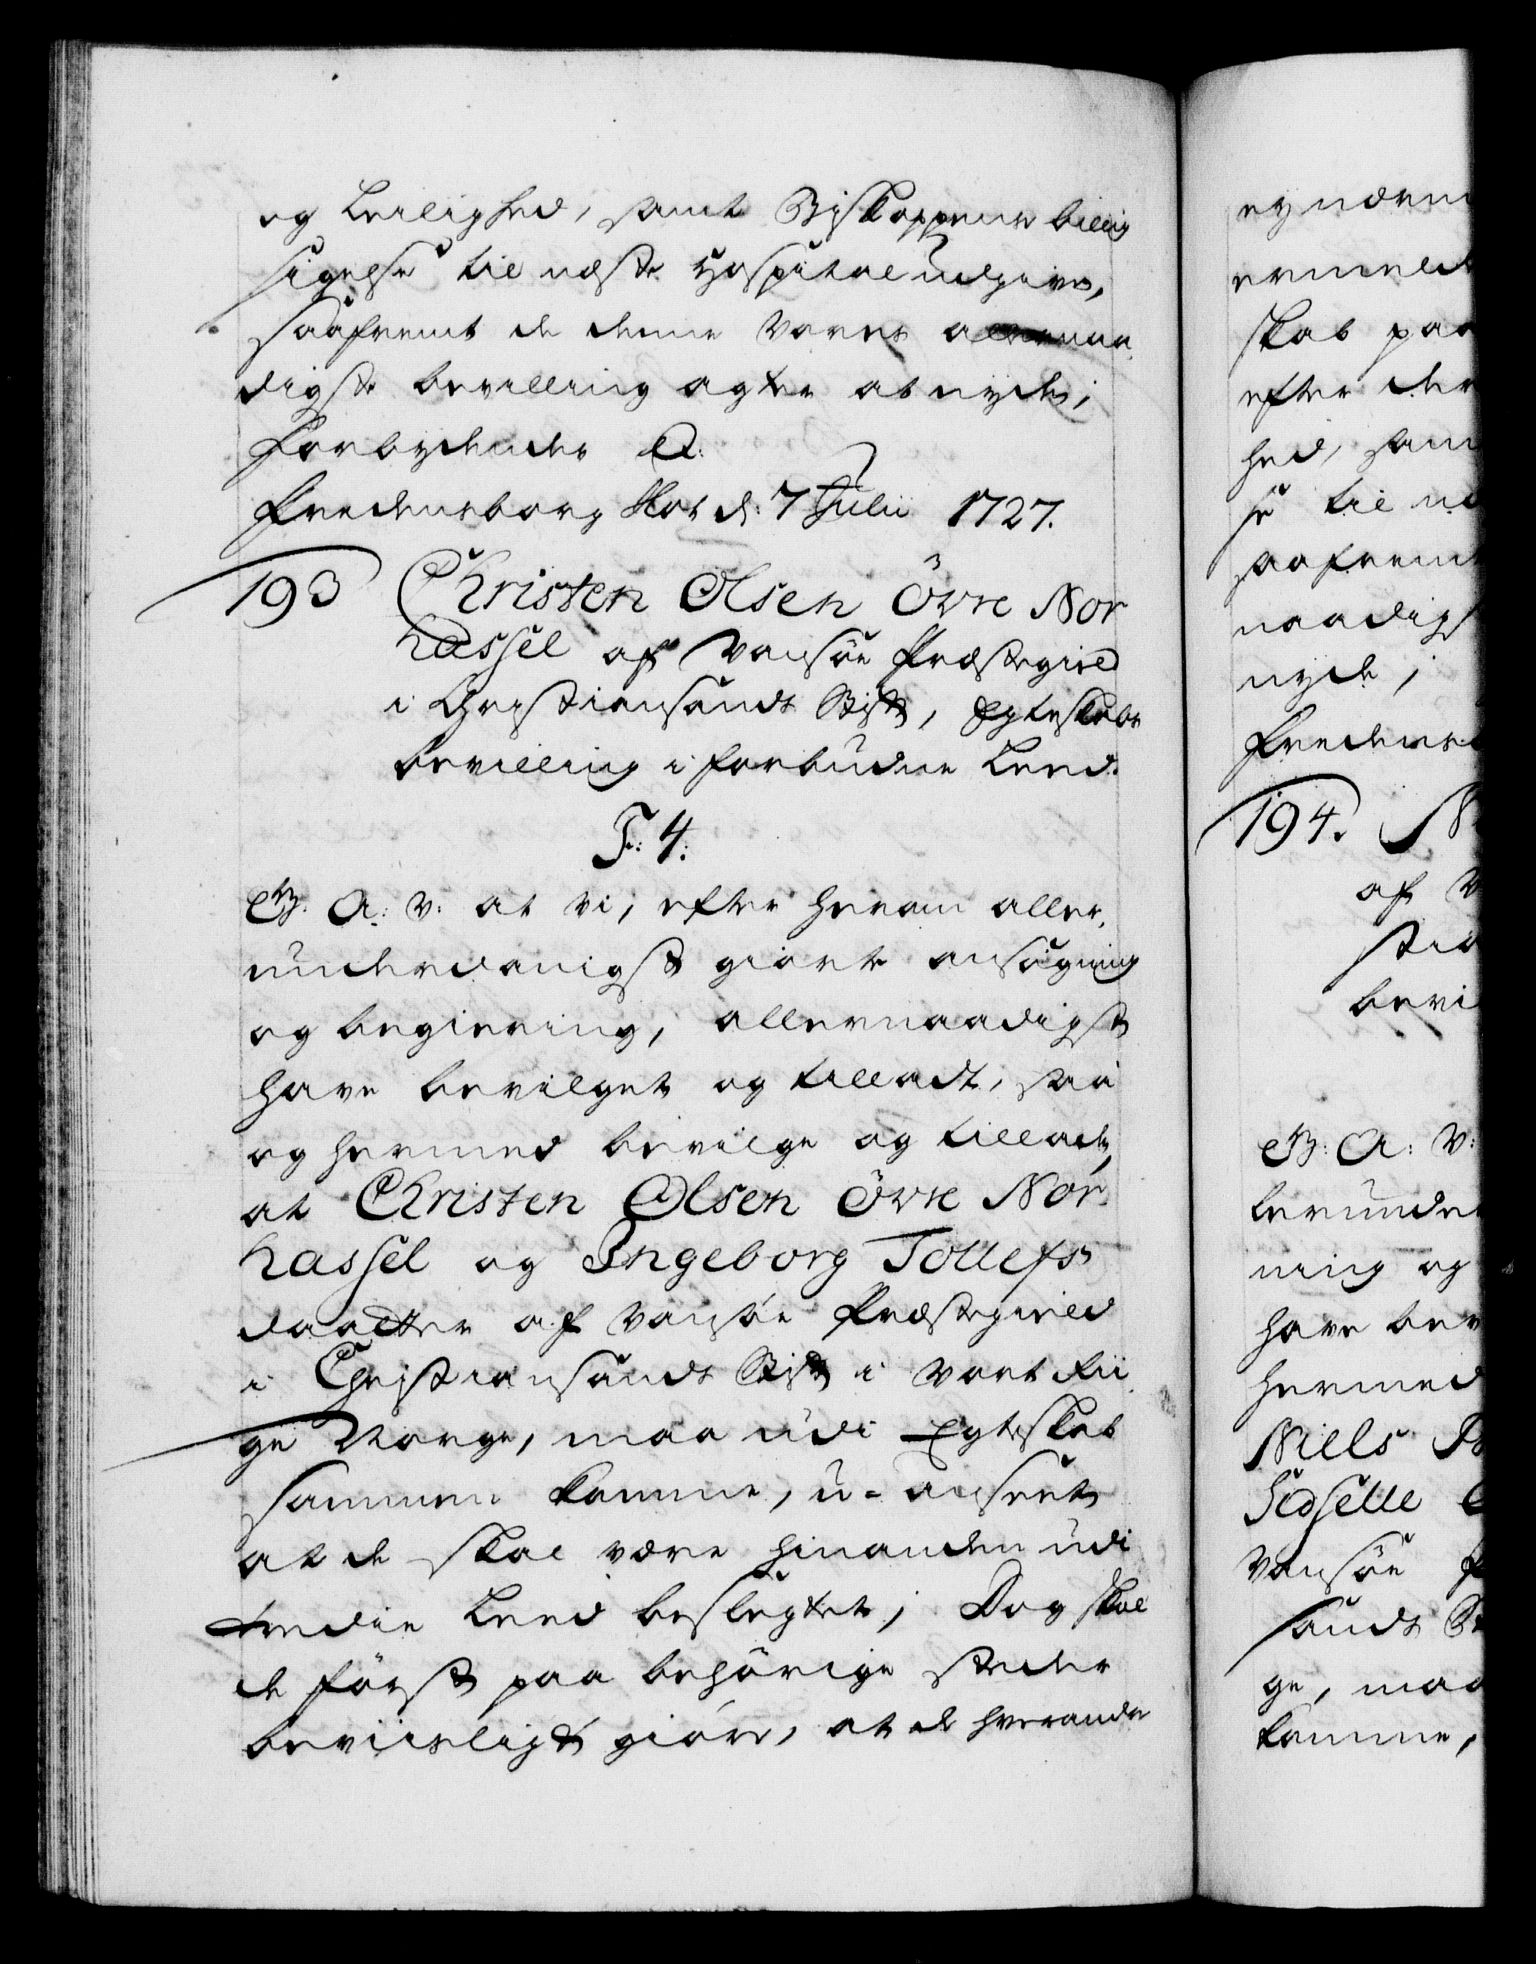 og Leilighed, samt Biskoppens billig
sigelse til næste Hospital udgive,
saafremt de denne Vores allernaa
digste bevilling agter at nyde;
Forbydendes &:
Fredensborg Slot d: 7 Julii 1727.
193 Christen Olsen Övre Nor
hassel af Vansöe Præstegield
i Christiansands Stift, Egteskabs
bevilling i forbudne Leed.
F: 4.
G. A: V: at Vi, efter herom aller,
underdanigst giorte ansögning
og begiering, allernaadigst
have bevilget og tilladt, saa
og hermed bevilge og tillade,
at Christen Olsen Övre Nor
hassel og Ingeborg Tollefs
daatter af Vansöe Præstegield
i Christiansands Stift i Vort Rii
ge Norge, maa udi Egteskab
sammen komme, u-anseet
at de skal være hinanden udi
tredie Leed beslegtet; Dog skal
de först paa behörige steder
beviisligt giöre, at de hverandre
ey nærm
ermeld
skab paa
efter der
hed, sam
se til næ
saafremt
naadigs
nyde;
Fredens
194. N
af V
stia
bevi
G: A: V:
lerunder
ning og
have bev
hermed
Niels
Sidselle
Vansöe P
sands St
ge, maa
komme,